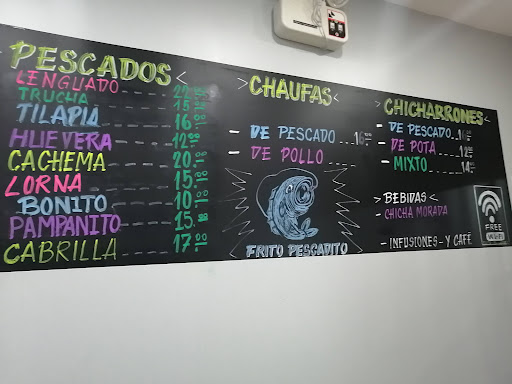 PESCADOS
LENGUADO 22.00
TRUCHA 15.00
TILAPIA 16.00
HUEVERA 12.00
CACHEMA 20.00
LORNA 15.00
BONITO 10.00
PAMPANITO 15.00
CABRILLA 17.00
CHAUFAS
- DE PESCADO
- DE POLLO
FRITO PESCADITO
CHICHARRONES
- DE PESCADO
- DE POTA 12.00
- MIXTO 14.00
> BEBIDAS <
> CHICHA MORADA
- INFUSIONES - Y CAFÉ
FREE
Wi-Fi